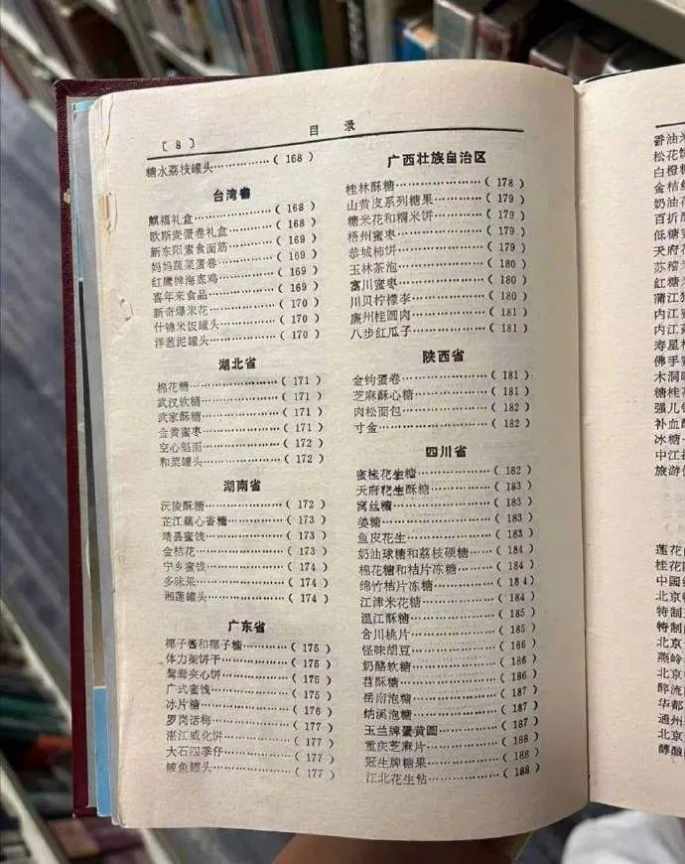 〔 8 〕
目 录
糖水荔枝罐头……………( 168 )
台湾省
麒福礼盒……………( 168 )
欧斯麦蛋卷礼盒……………( 168 )
新东阳素食面筋……………( 169 )
妈妈蔬菜蛋卷……………( 169 )
红鹰牌海底鸡……………( 169 )
喜年来食品……………( 169 )
新奇爆米花……………( 170 )
什锦米饭罐头……………( 170 )
洋葱泥罐头……………( 170 )
湖北省
棉花糖……………( 171 )
武汉软糖……………( 171 )
武家酥糖……………( 171 )
金黄蜜枣……………( 171 )
空心挂面……………( 172 )
和菜罐头……………( 172 )
湖南省
沅陵酥糖……………( 172 )
芷江藕心香糖……………( 173 )
靖县蜜饯……………( 173 )
金桔花……………( 173 )
宁乡蜜饯……………( 174 )
多味菜……………( 174 )
湘莲罐头……………( 174 )
广东省
椰子酱和椰子糖……………( 175 )
体力架饼干……………( 175 )
鸳鸯夹心饼……………( 175 )
广式蜜饯……………( 175 )
冰片糖……………( 176 )
罗岗话梅……………( 177 )
湛江威化饼……………( 177 )
大石四季仔……………( 177 )
鲮鱼罐头……………( 177 )
广西壮族自治区
桂林酥糖……………( 178 )
山黄皮系列糖果……………( 179 )
糯米花和糯米饼……………( 179 )
梧州蜜枣……………( 179 )
恭城柿饼……………( 179 )
玉林茶泡……………( 180 )
富川蜜枣……………( 180 )
川贝柠檬李……………( 180 )
廉州桂圆肉……………( 181 )
八步红瓜子……………( 181 )
陕西省
金钩蛋卷……………( 181 )
芝麻酥心糖……………( 181 )
肉松面包……………( 182 )
寸金……………( 182 )
四川省
蜜桂花生糖……………( 182 )
天府花生酥糖……………( 183 )
窝丝糖……………( 183 )
姜糖……………( 183 )
鱼皮花生……………( 183 )
奶油球糖和荔枝硬糖……………( 184 )
棉花糖和桔片冻糖……………( 184 )
绵竹桔片冻糖……………( 184 )
江津米花糖……………( 185 )
温江酥糖……………( 185 )
合川桃片……………( 185 )
怪味胡豆……………( 186 )
奶酪软糖……………( 186 )
苕酥糖……………( 186 )
岳南泡糖……………( 187 )
纳溪泡糖……………( 187 )
玉兰牌蛋黄圆……………( 187 )
重庆芝麻片……………( 188 )
冠生牌糖果……………( 188 )
江北花生粘……………( 188 )
香油米
松花
白橙
金桔
奶油花
百折
低糖
天府花
苏稽米
红糖
蒲江
内江
内江
寿星
佛手
木洞
糖桂花
强儿
补血
冰糖
中江
旅游
莲花
桂花
中国
北京
特制
特制
北京
燕岭
北京
醇流
华都
通州
北京
醇酿